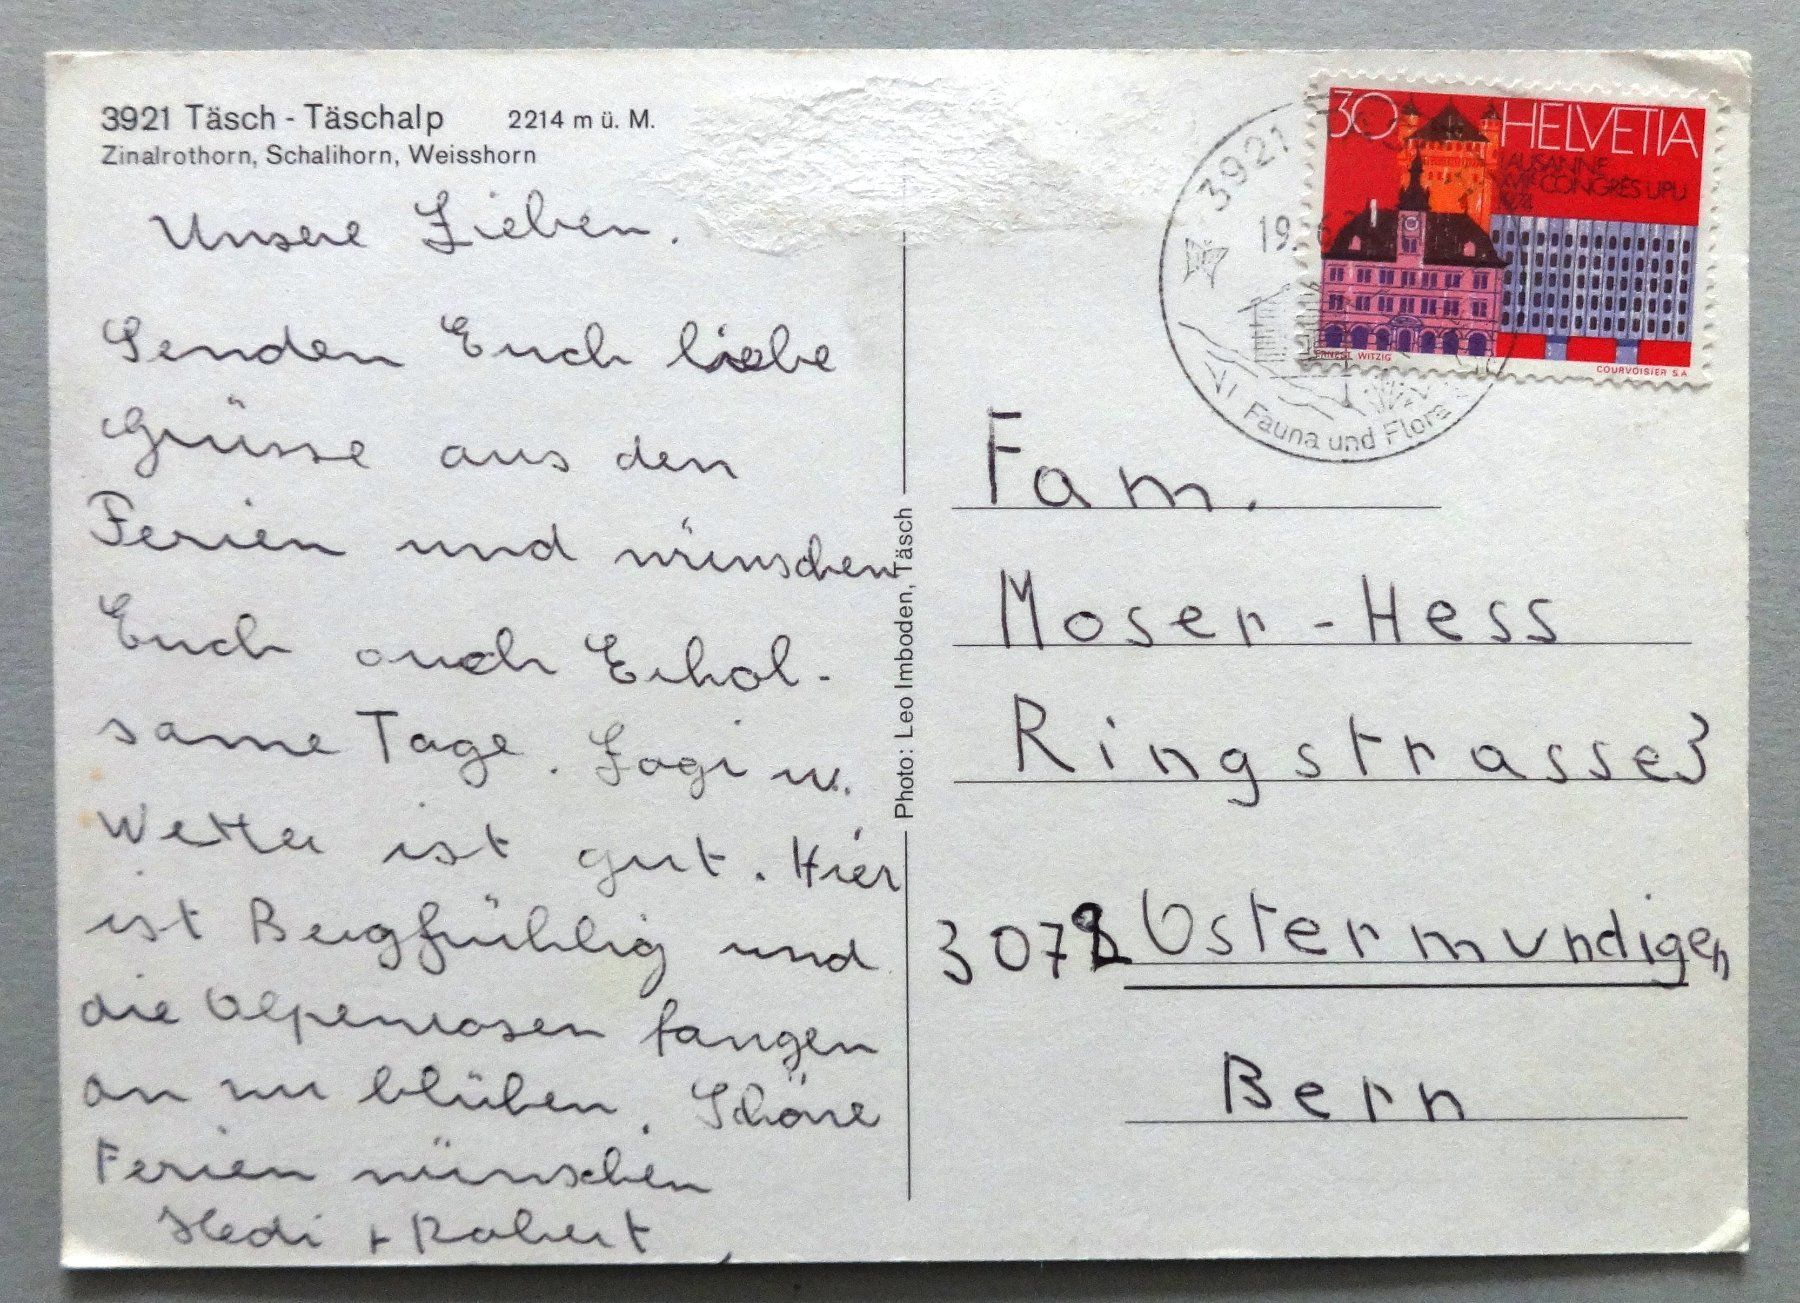 3921 Täsch - Täschalp 2214 m ü. M.
Zinalrothorn, Schalihorn, Weisshorn
Unsere Lieben.
Senden Euch liebe
Grüsse aus den
Ferien und wünschen
Euch auch Erhol-
same Tage. Logi u.
Wetter ist gut. Hier
ist Bergfrühlig und
die Alpenrosen fangen
an zu blühen. Schöne
Ferien wünschen
Hedi + Robert
Photo: Leo Imboden, Täsch
3921
19.
Fauna und Flora
30 HELVETIA
LAUSANNE
CONGRÈS UPU
ERNST WITZIG
COURVOISIER S.A.
Fam.
Moser-Hess
Ringstrasse 3
3072 Ostermundigen
Bern